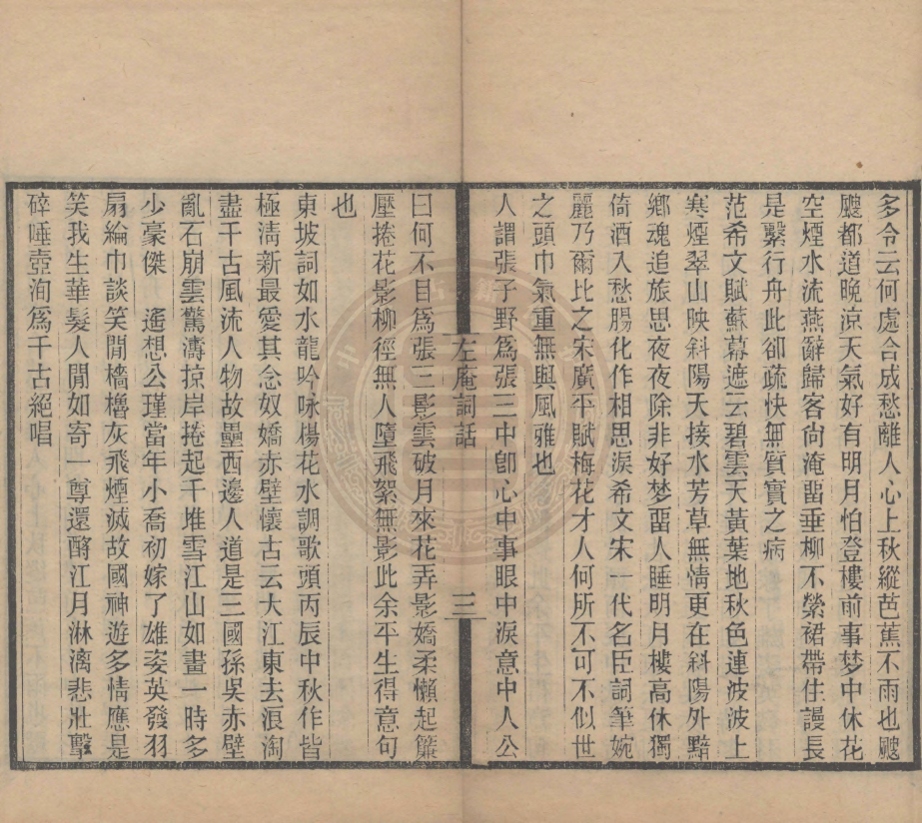 多令云何處合成愁離人心上秋縱芭蕉不雨也颼
颼都道晚涼天氣好有明月怕登樓前事梦中休花
空煙水流燕辭歸客尙淹畱垂柳不縈裙帶住謾長
是繫行舟此卻疏快無質實之病
范希文賦蘇幕遮云碧雲天黃葉地秋色連波波上
寒煙翠山映斜陽天接水芳草無情更在斜陽外黯
鄕魂追旅思夜夜除非好梦畱人睡明月樓高休獨
倚酒入愁腸化作相思淚希文宋一代名臣詞筆婉
麗乃爾比之宋廣平賦梅花才人何所不可不似世
之頭巾氣重無與風雅也
人謂張子野爲張三中卽心中事眼中淚意中人公
左庵詞話
三
曰何不目爲張三影雲破月來花弄影嬌柔懶起簾
壓捲花影柳徑無人墮飛絮無影此余平生得意句
也
東坡詞如水龍吟咏楊花水調歌頭丙辰中秋作皆
極淸新最愛其念奴嬌赤壁懷古云大江東去浪淘
盡千古風流人物故壘西邊人道是三國孫吳赤壁
亂石崩雲驚濤掠岸捲起千堆雪江山如畫一時多
少豪傑　遙想公瑾當年小喬初嫁了雄姿英發羽
扇綸巾談笑閒檣櫓灰飛煙滅故國神遊多情應是
笑我生華髮人閒如寄一尊還酹江月淋漓悲壯擊
碎唾壺洵爲千古絕唱